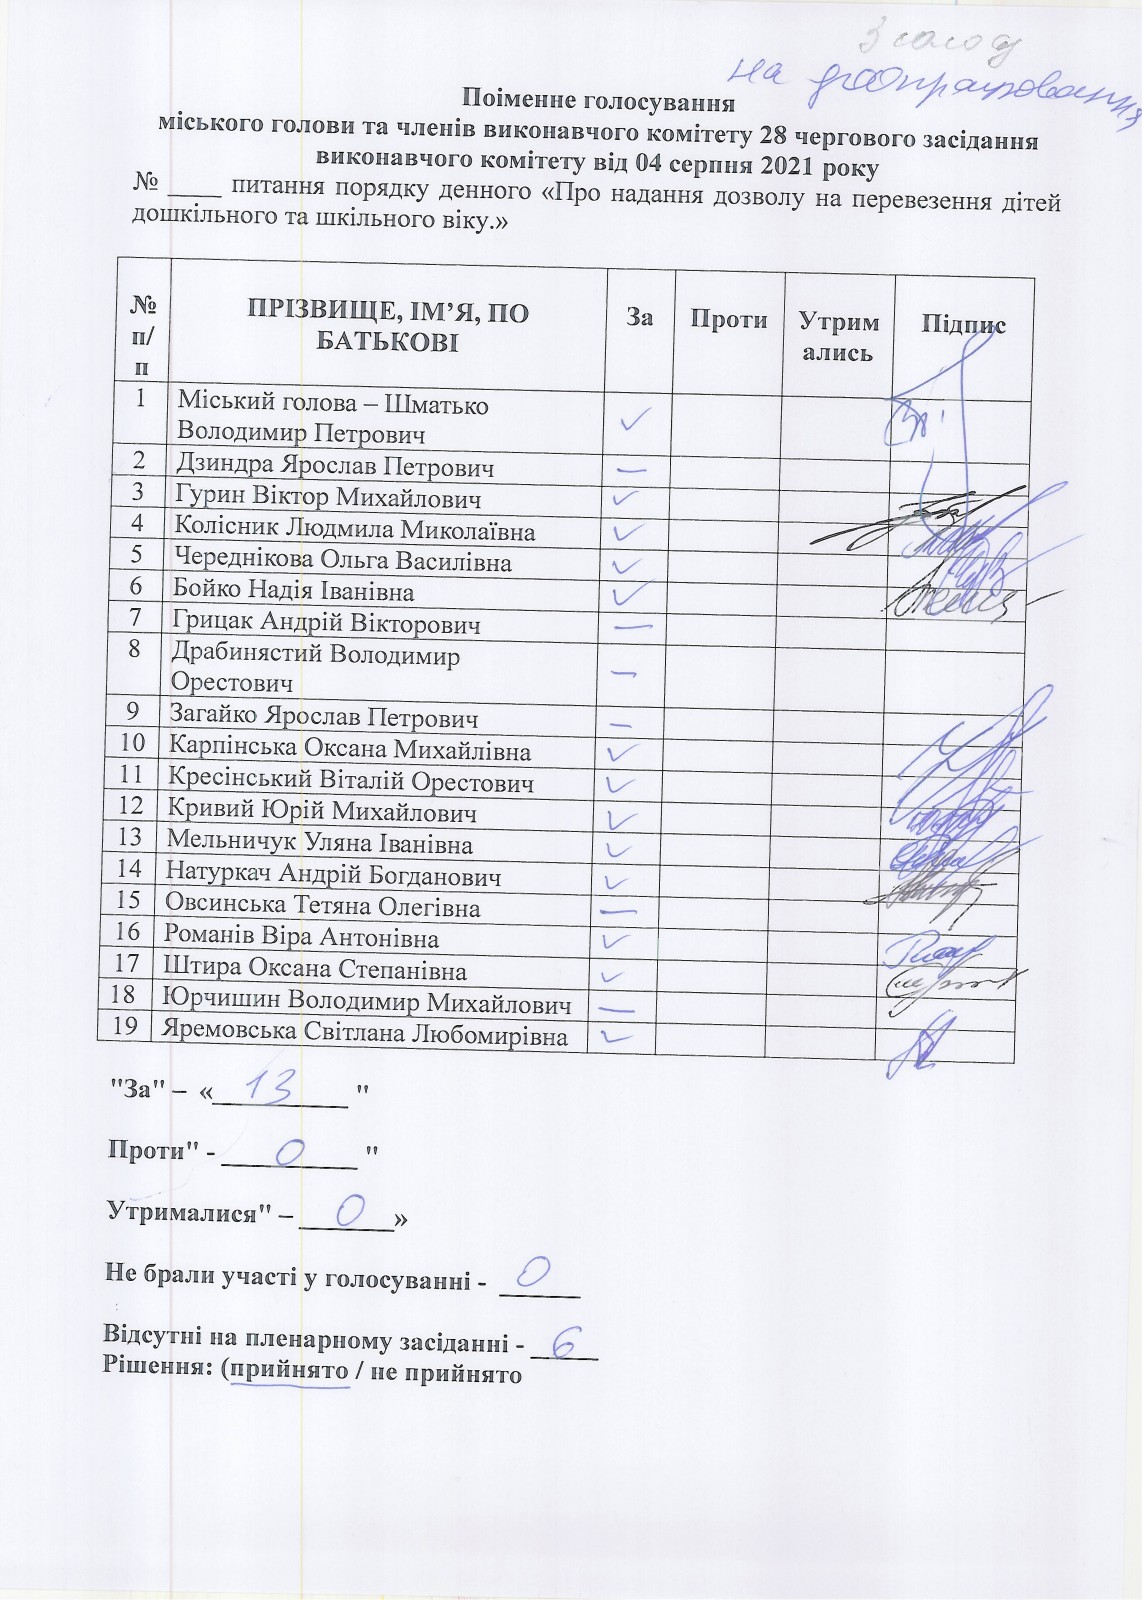 З голосу
на доопрацювання
Поіменне голосування
міського голови та членів виконавчого комітету 28 чергового засідання
виконавчого комітету від 04 серпня 2021 року
№ ____ питання порядку денного «Про надання дозволу на перевезення дітей
дошкільного та шкільного віку.»
№ п/п ПРІЗВИЩЕ, ІМ’Я, ПО БАТЬКОВІ За Проти Утримались Підпис
1 Міський голова – Шматько
Володимир Петрович ✓
2 Дзиндра Ярослав Петрович –
3 Гурин Віктор Михайлович ✓
4 Колісник Людмила Миколаївна ✓
5 Череднікова Ольга Василівна ✓
6 Бойко Надія Іванівна ✓
7 Грицак Андрій Вікторович –
8 Драбинястий Володимир
Орестович –
9 Загайко Ярослав Петрович –
10 Карпінська Оксана Михайлівна ✓
11 Кресінський Віталій Орестович ✓
12 Кривий Юрій Михайлович ✓
13 Мельничук Уляна Іванівна ✓
14 Натуркач Андрій Богданович ✓
15 Овсинська Тетяна Олегівна –
16 Романів Віра Антонівна ✓
17 Штира Оксана Степанівна ✓
18 Юрчишин Володимир Михайлович –
19 Яремовська Світлана Любомирівна ✓
"За" – «___13___ "
Проти" - ___0___ "
Утрималися" – ___0___»
Не брали участі у голосуванні - _0_
Відсутні на пленарному засіданні - _6_
Рішення: (прийнято / не прийнято